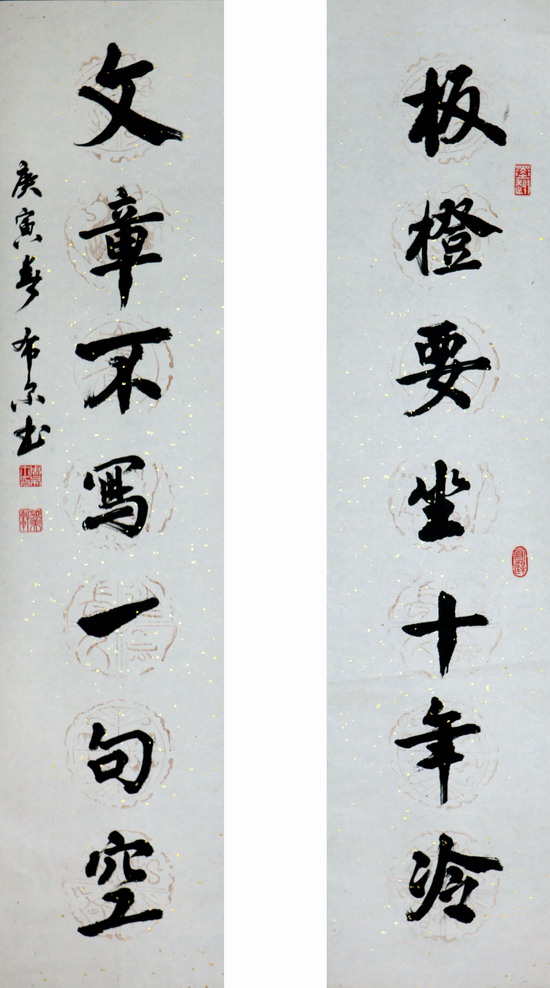 板橙要坐十年冷
文章不写一句空
庚寅春 布尔书